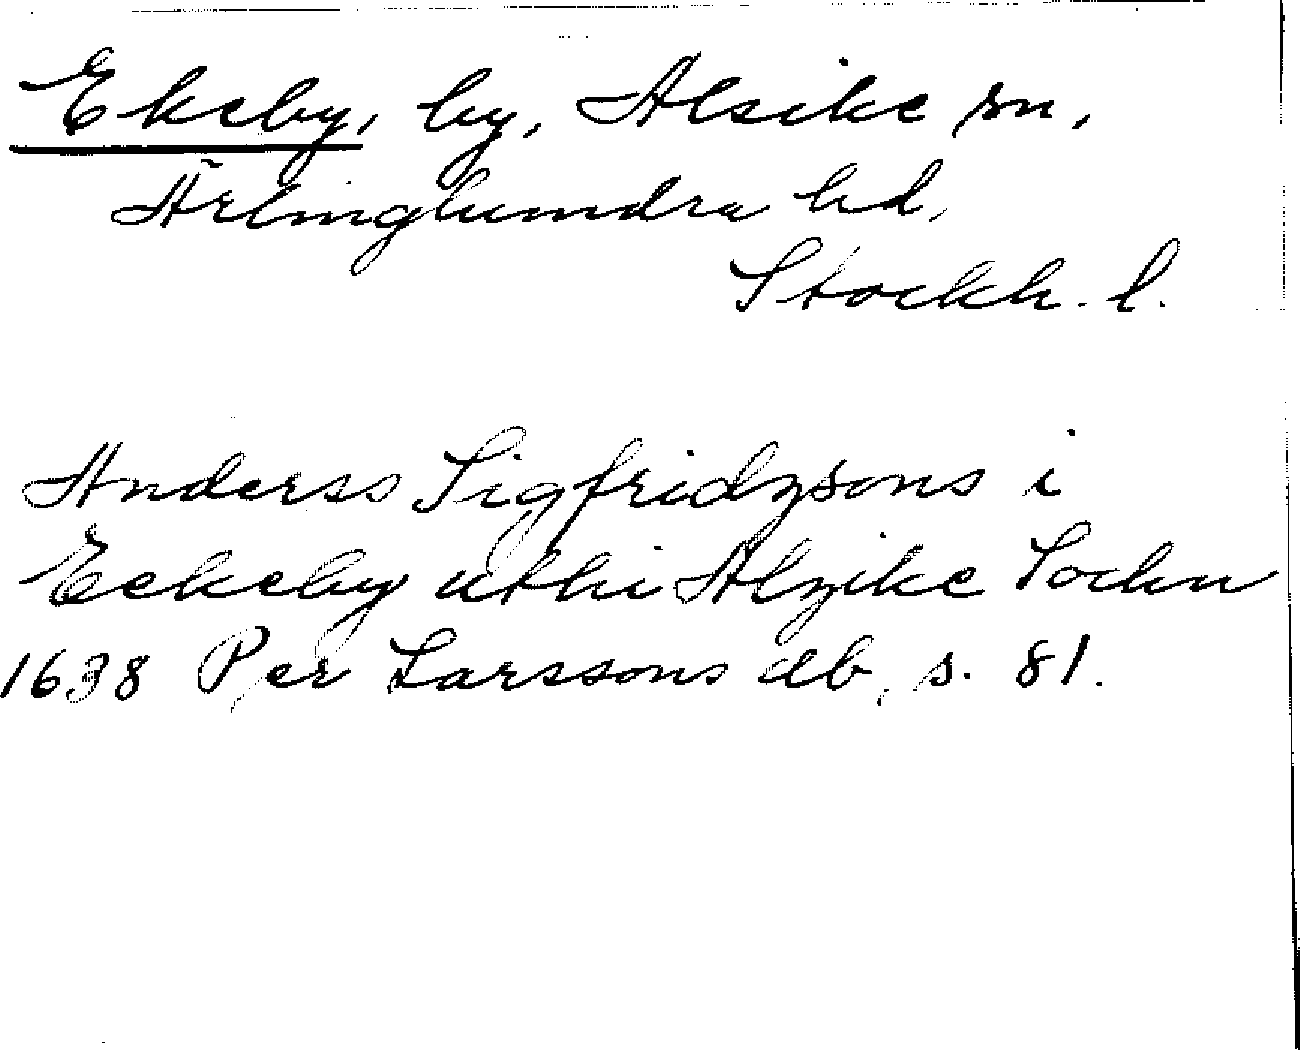 Ekeby, by, Alsike sn,
Ärlinghundra hd,
Stockh. l.
Anderss Sigfridzsons i
Eckeby uthi Alzike Sochn
1638 Per Larssons db, s. 81.